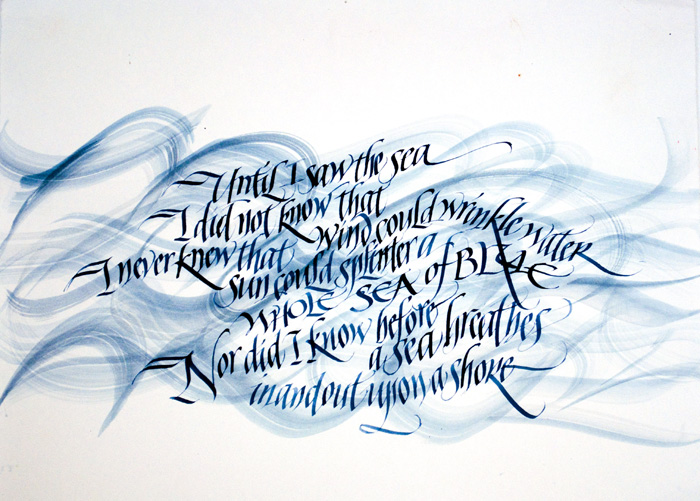 Until I saw the sea
I did not know that
wind could wrinkle water
I never knew that
sun could splinter a
WHOLE SEA of BLUE
Nor did I know before
a sea breathes
in and out upon a shore